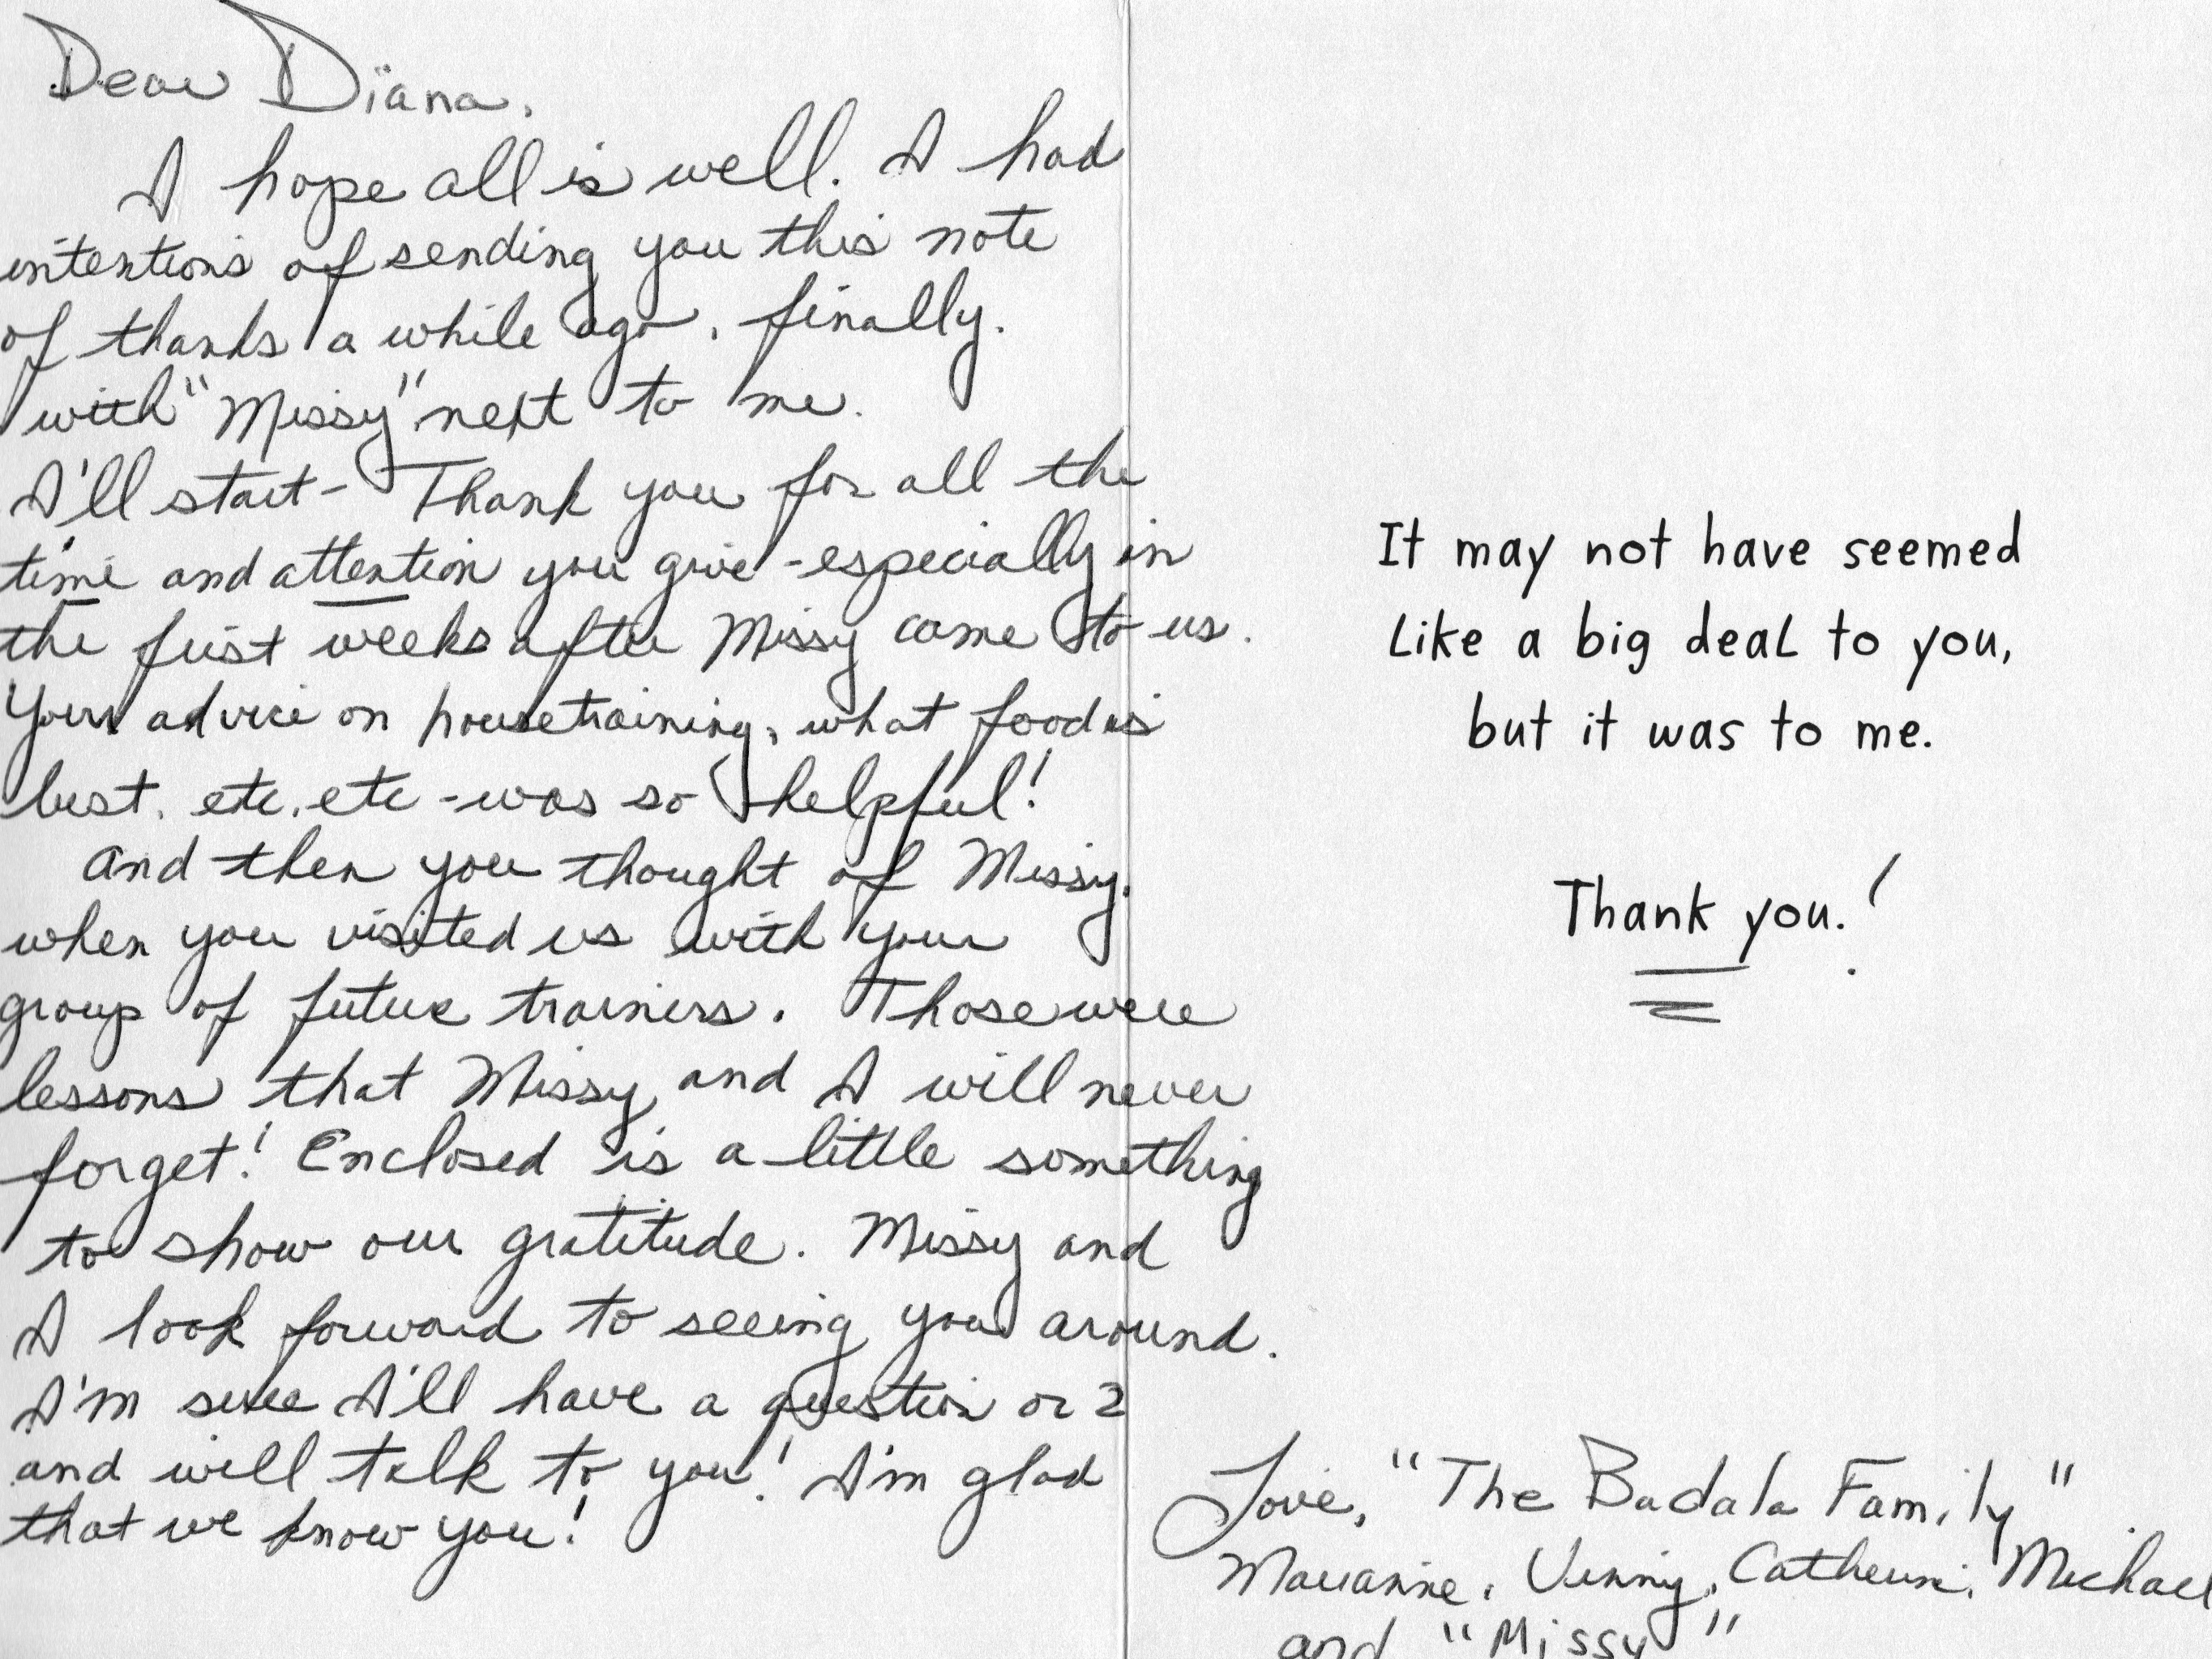 Dear Diana,
I hope all is well. I had
intentions of sending you this note
of thanks a while ago, finally.
with "Missy" next to me.
I'll start - Thank you for all the
time and attention you give - especially in
the first weeks after Missy came to us.
Your advice on housetraining, what food is
best, etc, etc - was so helpful!
And then you thought of Missy,
when you visited us with your
group of future trainers. Those were
lessons that Missy and I will never
forget! Enclosed is a little something
to show our gratitude. Missy and
I look forward to seeing you around.
I'm sure I'll have a question or 2
and will talk to you! I'm glad
that we know you!
It may not have seemed
like a big deal to you,
but it was to me.
Thank you.!
Love, "The Badala Family"
Marianne, Vinny, Catherine, Michael
and "Missy"